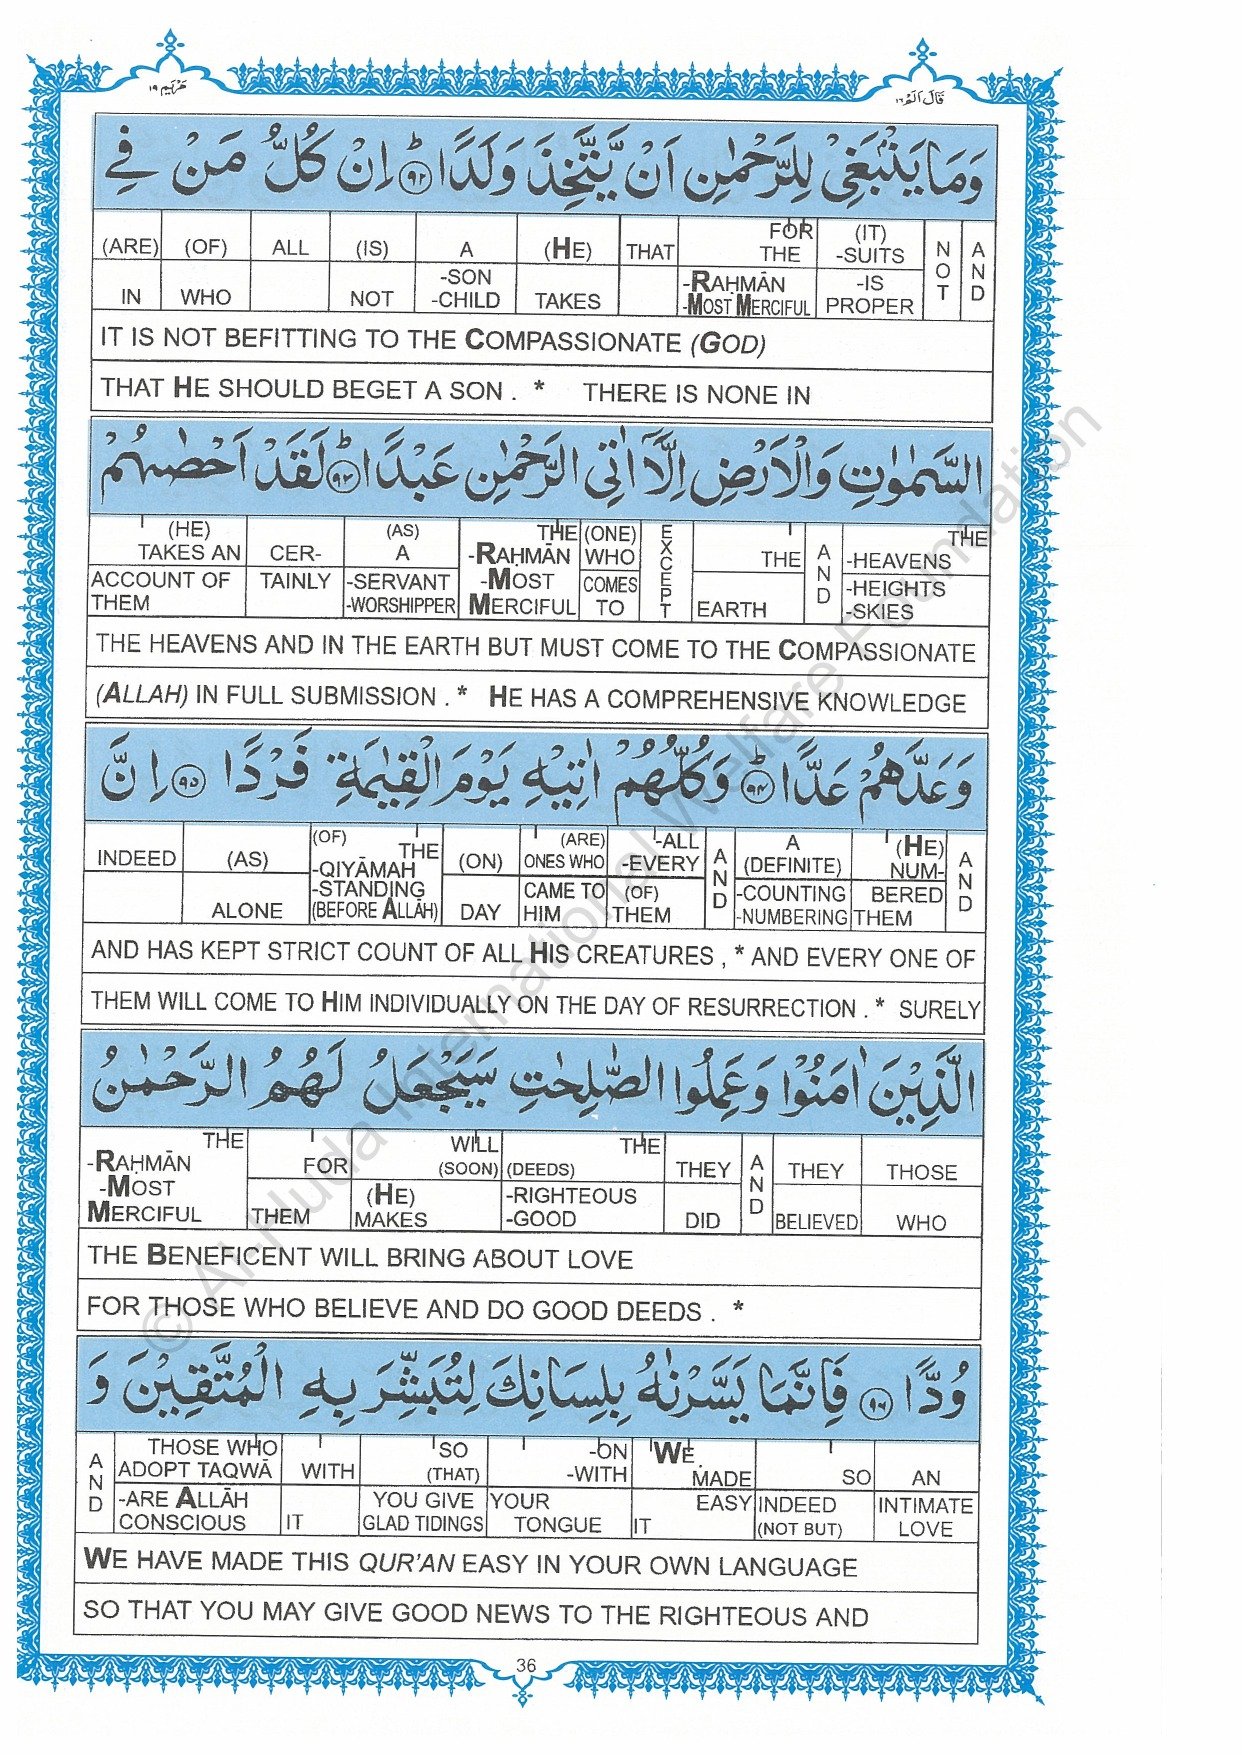 مريم ١٩
قال الم ١٦
وَمَا يَنْۢبَغِيْ لِلرَّحْمٰنِ اَنْ يَّتَّخِذَ وَلَدًا ؕ ۹۲ اِنْ كُلُّ مَنْ فِي
(ARE) (OF) ALL (IS) A (HE) THAT FOR THE (IT) -SUITS NOT AND
IN WHO NOT -SON -CHILD TAKES -RAḤMĀN -MOST MERCIFUL -IS PROPER
IT IS NOT BEFITTING TO THE COMPASSIONATE (GOD)
THAT HE SHOULD BEGET A SON . * THERE IS NONE IN
السَّمٰوٰتِ وَالْاَرْضِ اِلَّاۤ اٰتِي الرَّحْمٰنِ عَبْدًا ؕ ۹۳ لَقَدْ اَحْصٰىهُمْ
(HE) TAKES AN CER- (AS) A THE -RAḤMĀN (ONE) WHO EXCEPT THE AND THE -HEAVENS
ACCOUNT OF THEM TAINLY -SERVANT -WORSHIPPER -MOST MERCIFUL COMES TO EARTH -HEIGHTS -SKIES
THE HEAVENS AND IN THE EARTH BUT MUST COME TO THE COMPASSIONATE
(ALLAH) IN FULL SUBMISSION . * HE HAS A COMPREHENSIVE KNOWLEDGE
وَعَدَّهُمْ عَدًّا ؕ ۹۴ وَكُلُّهُمْ اٰتِيْهِ يَوْمَ الْقِيٰمَةِ فَرْدًا ۹۵ اِنَّ
INDEED (AS) (OF) THE -QIYĀMAH (ON) (ARE) ONES WHO -ALL -EVERY AND A (DEFINITE) (HE) NUM- AND
ALONE -STANDING (BEFORE ALLĀH) DAY CAME TO HIM (OF) THEM -COUNTING -NUMBERING BERED THEM
AND HAS KEPT STRICT COUNT OF ALL HIS CREATURES , * AND EVERY ONE OF
THEM WILL COME TO HIM INDIVIDUALLY ON THE DAY OF RESURRECTION . * SURELY
الَّذِيْنَ اٰمَنُوْا وَعَمِلُوا الصّٰلِحٰتِ سَيَجْعَلُ لَهُمُ الرَّحْمٰنُ
THE -RAḤMĀN FOR WILL (SOON) THE (DEEDS) THEY AND THEY THOSE
-MOST MERCIFUL THEM (HE) MAKES -RIGHTEOUS -GOOD DID BELIEVED WHO
THE BENEFICENT WILL BRING ABOUT LOVE
FOR THOSE WHO BELIEVE AND DO GOOD DEEDS . *
وُدًّا ۹۶ فَاِنَّمَا يَسَّرْنٰهُ بِلِسَانِكَ لِتُبَشِّرَ بِهِ الْمُتَّقِيْنَ وَ
AND THOSE WHO ADOPT TAQWĀ WITH SO (THAT) -ON -WITH WE MADE SO AN
-ARE ALLĀH CONSCIOUS IT YOU GIVE GLAD TIDINGS YOUR TONGUE EASY IT INDEED (NOT BUT) INTIMATE LOVE
WE HAVE MADE THIS QUR'AN EASY IN YOUR OWN LANGUAGE
SO THAT YOU MAY GIVE GOOD NEWS TO THE RIGHTEOUS AND
36
© Al-Huda International Welfare Foundation